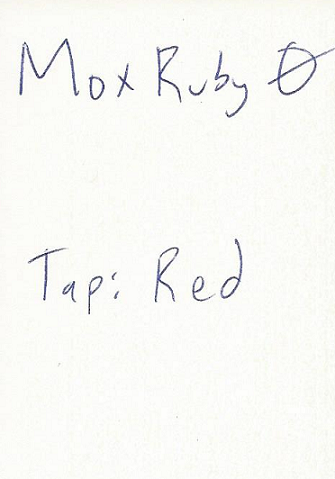 Mox Ruby 0
Tap: Red